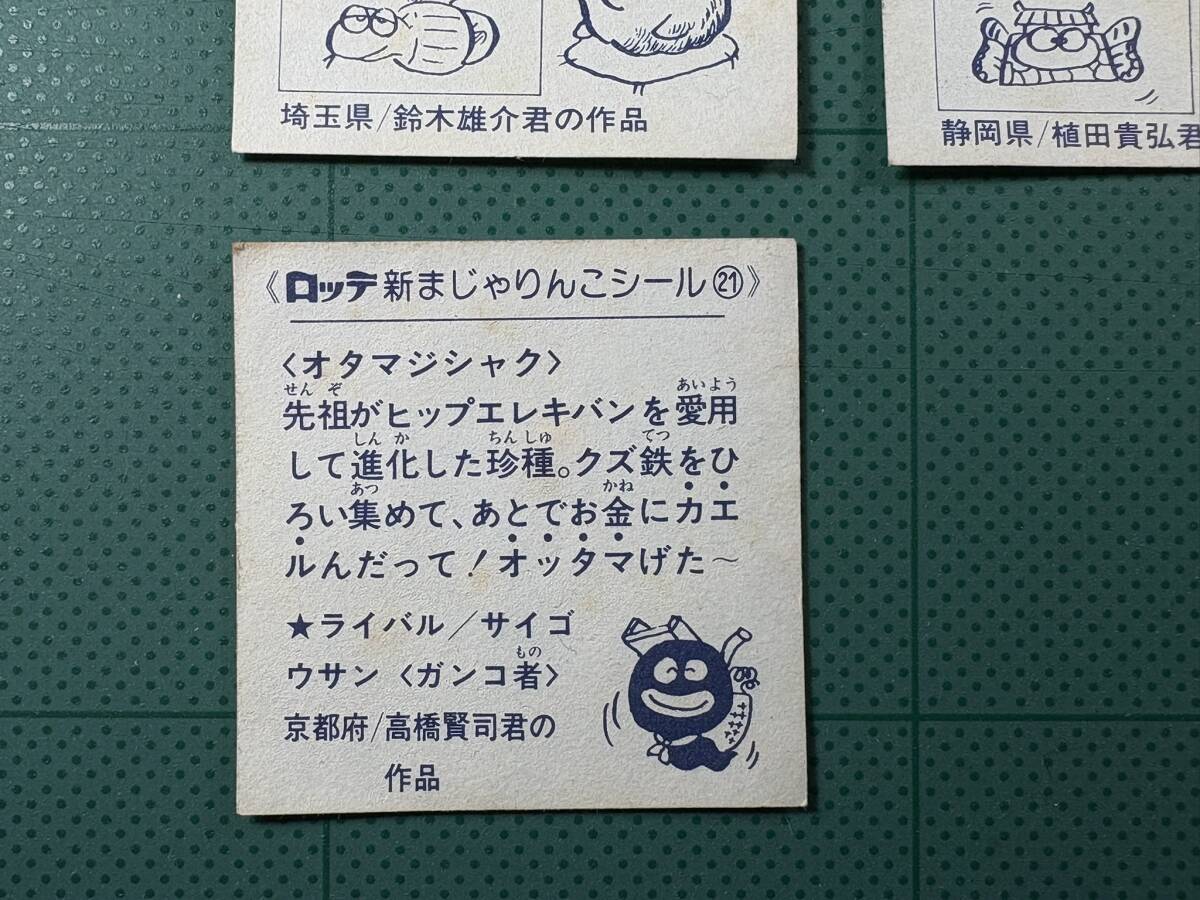 埼玉県/鈴木雄介君の作品
静岡県/植田貴弘君
《ロッテ新まじゃりんこシール㉑》
〈オタマジシャク〉
せんぞ あいよう
先祖がヒップエレキバンを愛用
しんか ちんしゅ てつ
して進化した珍種。クズ鉄をひ
あつ かね
ろい集めて、あとでお金にカエ
ルんだって！オッタマげた～
★ライバル／サイゴ
もの
ウサン〈ガンコ者〉
京都府/高橋賢司君の
作品